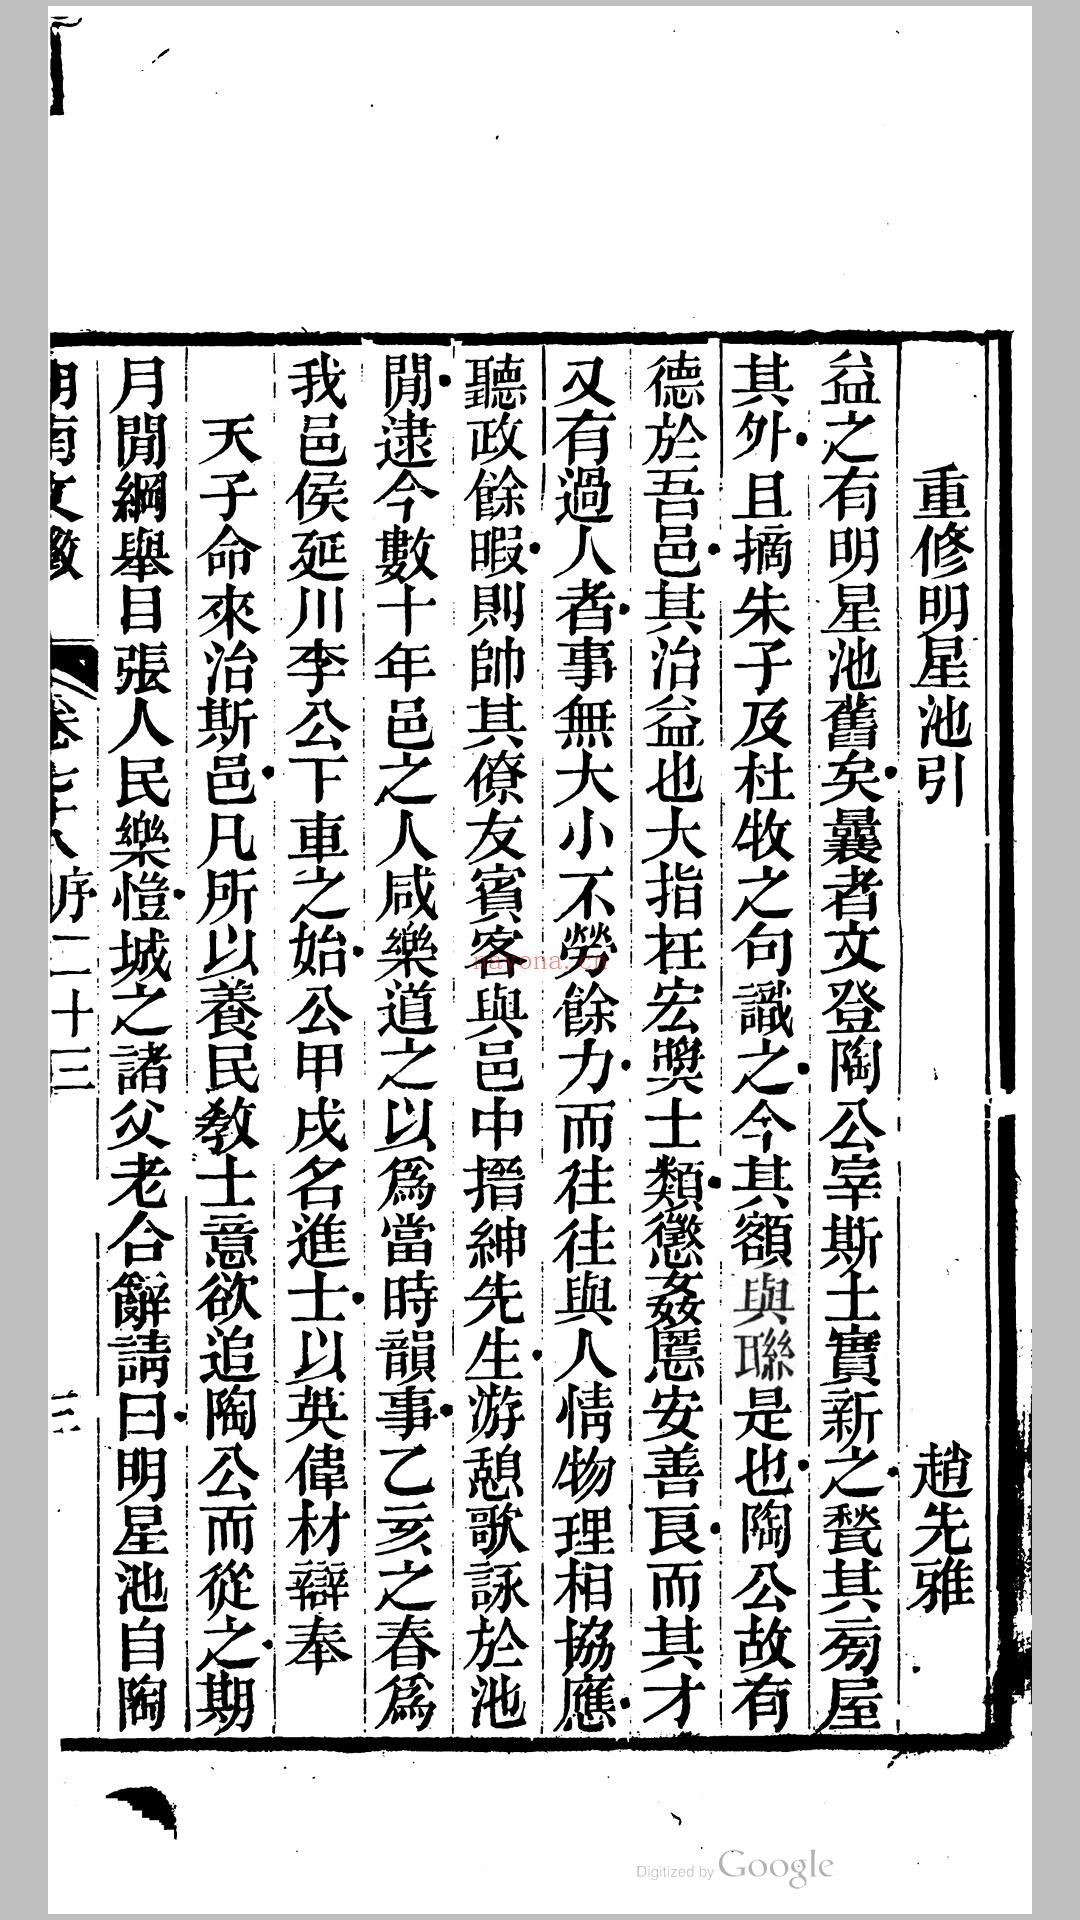 重修明星池引 趙先雅
益之有明星池舊矣曩者文登陶公宰斯土實新之甃其旁屋
其外且摘朱子及杜牧之句識之今其額與聯是也陶公故有
德於吾邑其治益也大指在宏奬士類懲姦慝安善良而其才
又有過人者事無大小不勞餘力而往往與人情物理相協應
聽政餘暇則帥其僚友賓客與邑中搢紳先生游憩歌詠於池
閒逮今數十年邑之人咸樂道之以爲當時韻事乙亥之春爲
我邑侯延川李公下車之始公甲戌名進士以英偉材辯奉
天子命來治斯邑凡所以養民教士意欲追陶公而從之期
月閒綱舉目張人民樂愷城之諸父老合辭請曰明星池自陶
湖南文徵 卷七十八序二十三 三
Digitized by Google
nayona.cn